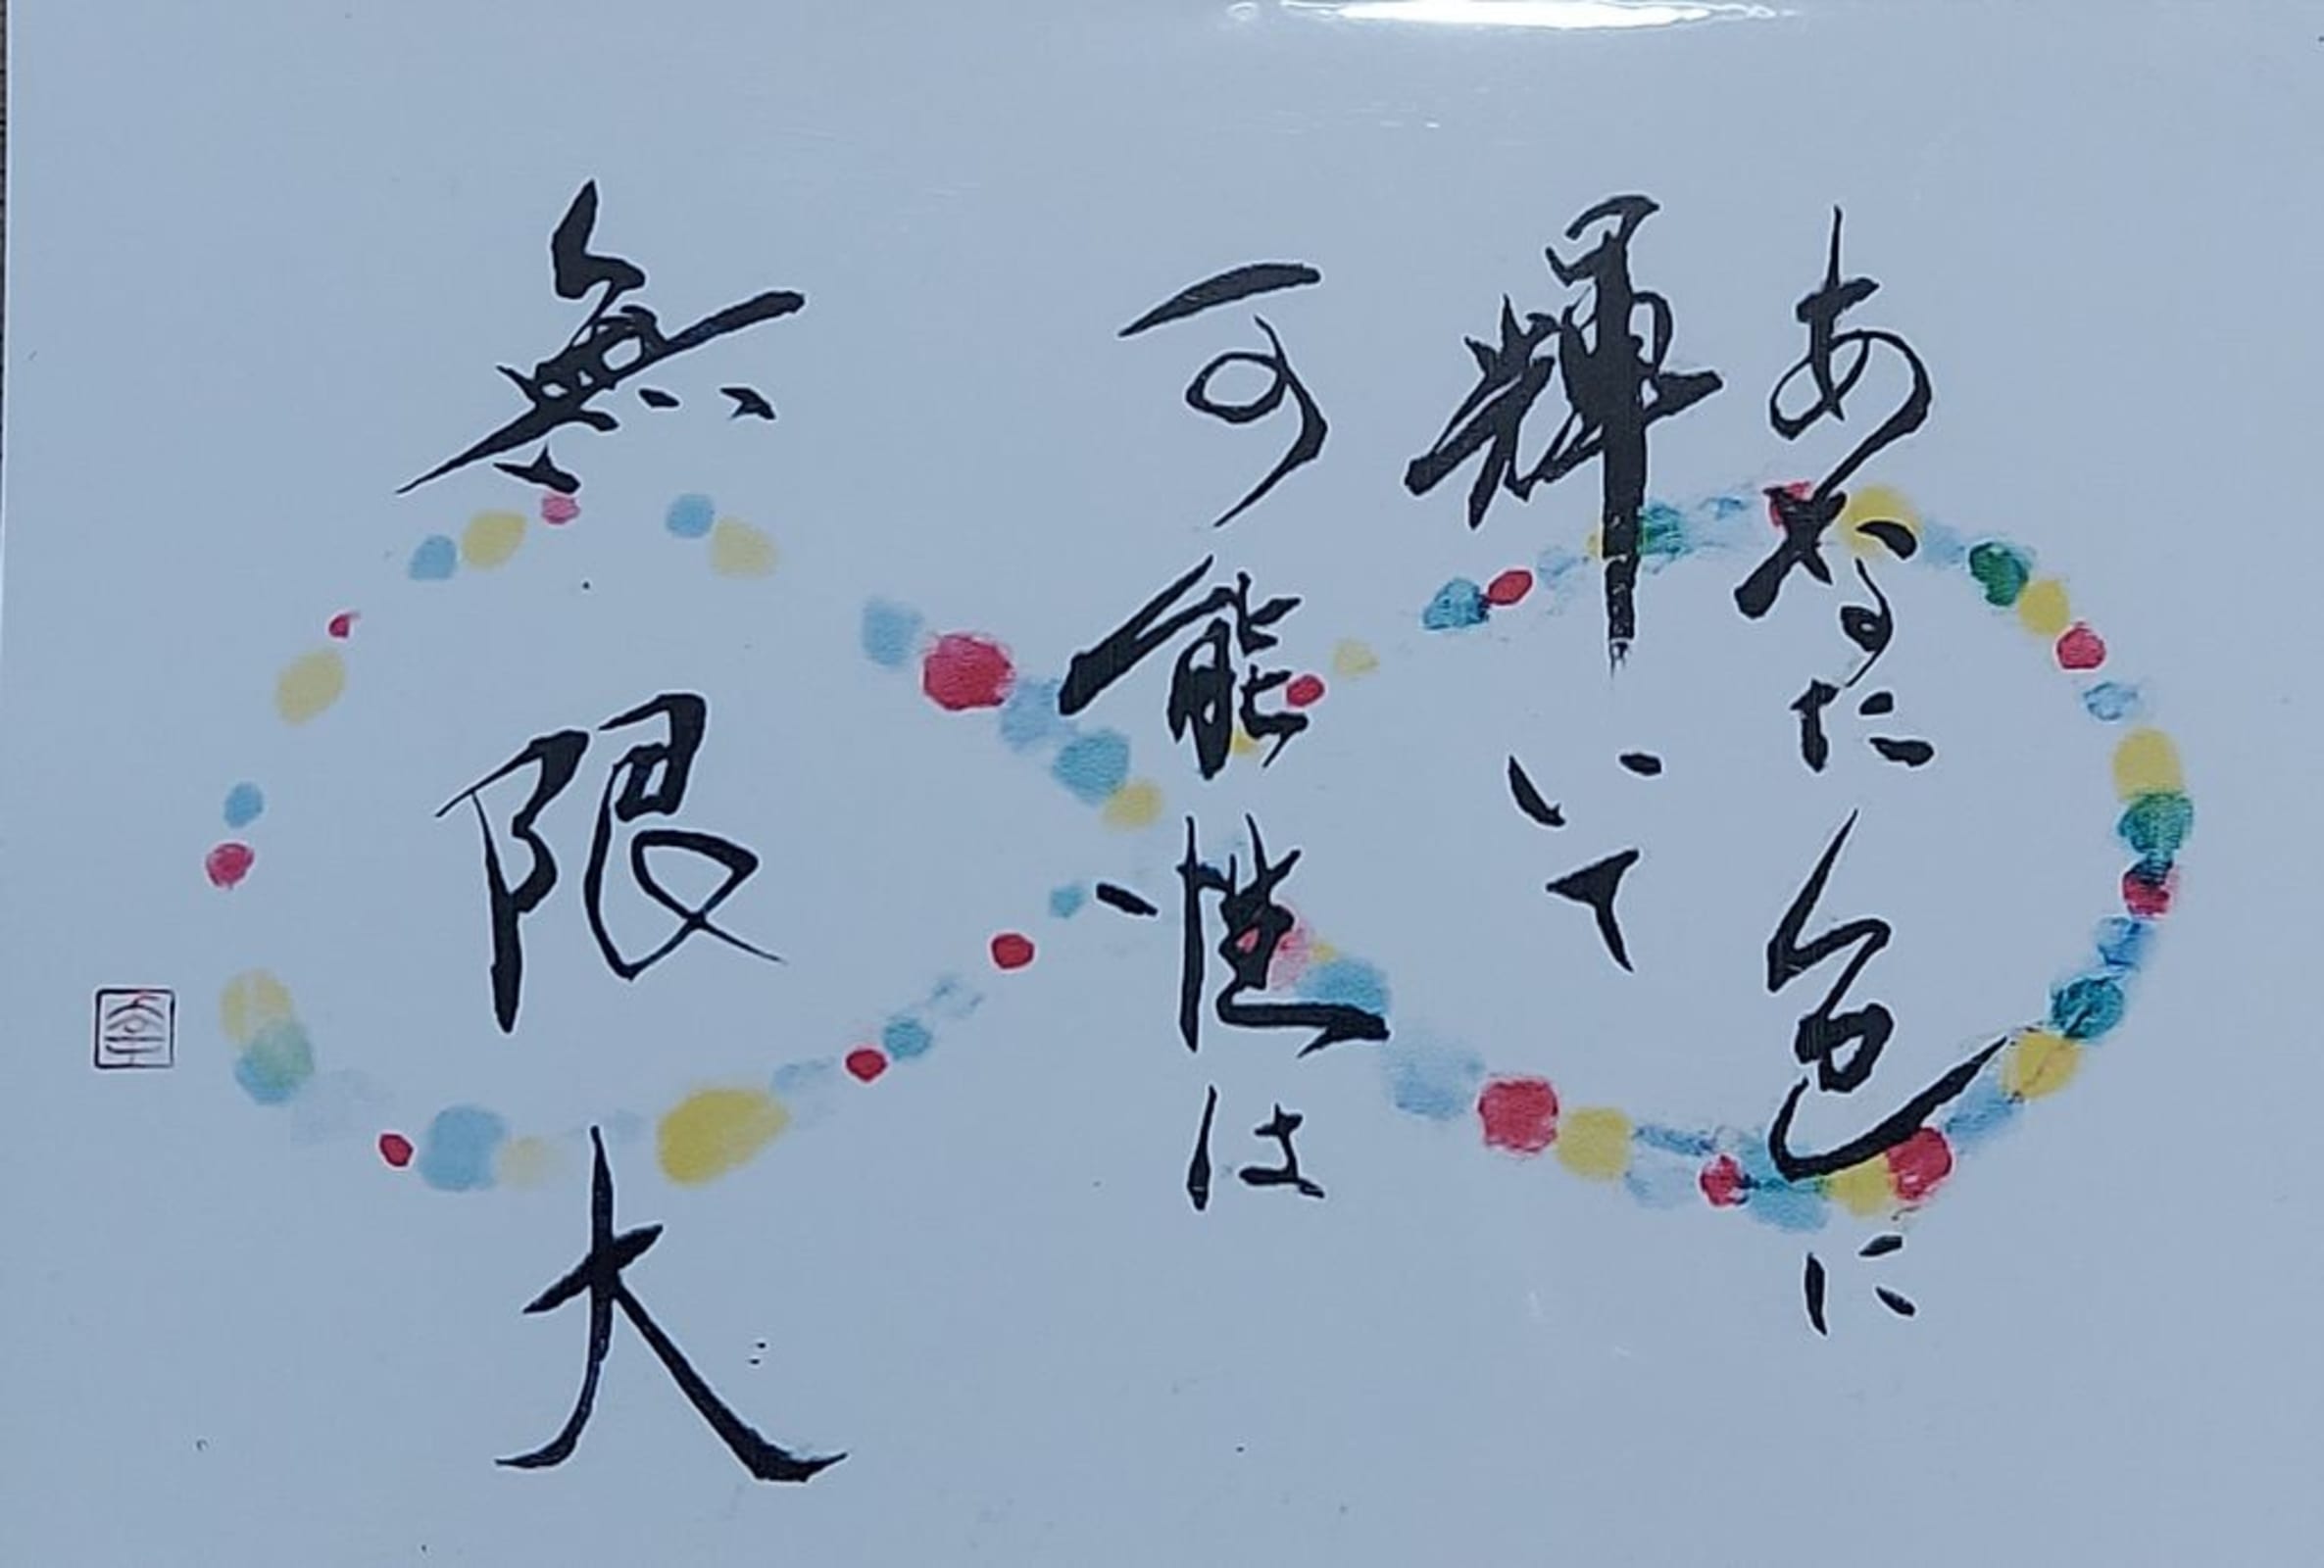 あなた色に
輝いて
可能性は
無限大